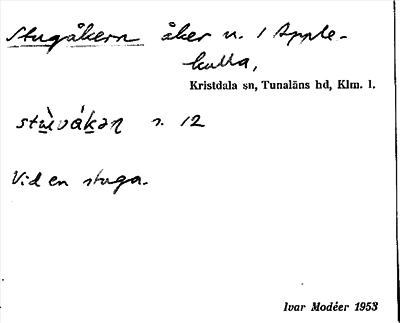 Stugåkern åker u. / Apple-
kulla,
Kristdala sn, Tunaläns hd, Klm. l.
s. 12
Vid en stuga.
Ivar Modéer 1953